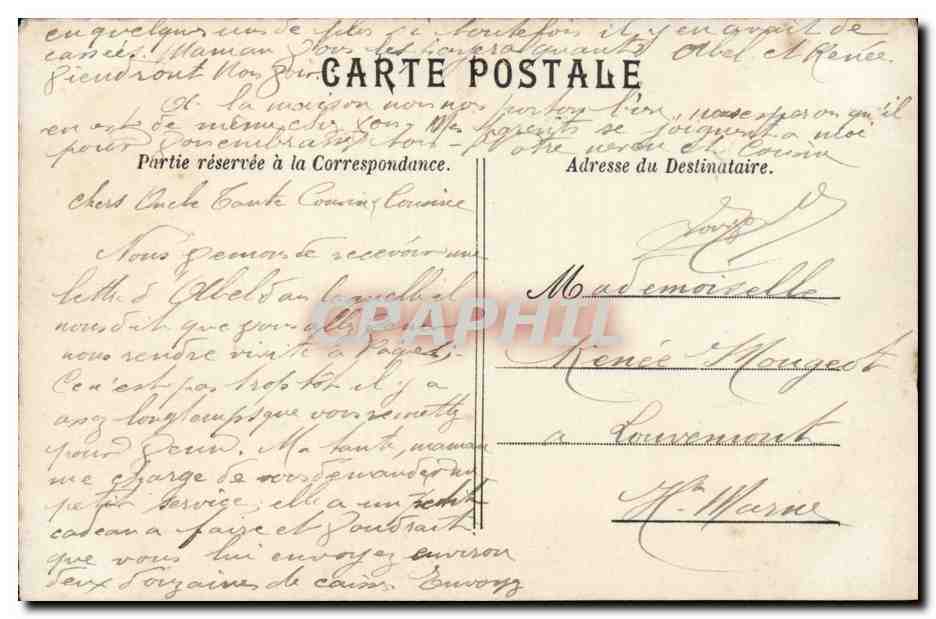 en quelques uns de plus si toutefois il y en avait de
cassés. Maman vous les payera quand
viendront nous voir. Abel et Renée
CARTE POSTALE
A la maison nous nous portons bien, nous esperons qu'il
en est de même chez vous. Mes parents se joignent a moi
pour vous embrasser tous - Votre neveu et Cousin
Partie réservée à la Correspondance.
Adresse du Destinataire.
chers Oncle Tante Cousin, Cousine
Nous venons de recevoir une
lettre d'Abel dans laquelle il
nous dit que vous allez venir
nous rendre visite à Paques,
Ce n'est pas trop tôt il y a
assez longtemps que vous remettez
pour venir. Ma tante, maman
me charge de vous demander un
petit service; elle a un petit
cadeau a faire et voudrait
que vous lui envoyez environ
deux douzaines de Envoyez
Mademoiselle
Renée Mougeot
a Louvemont
Hte Marne
CPAPHIL